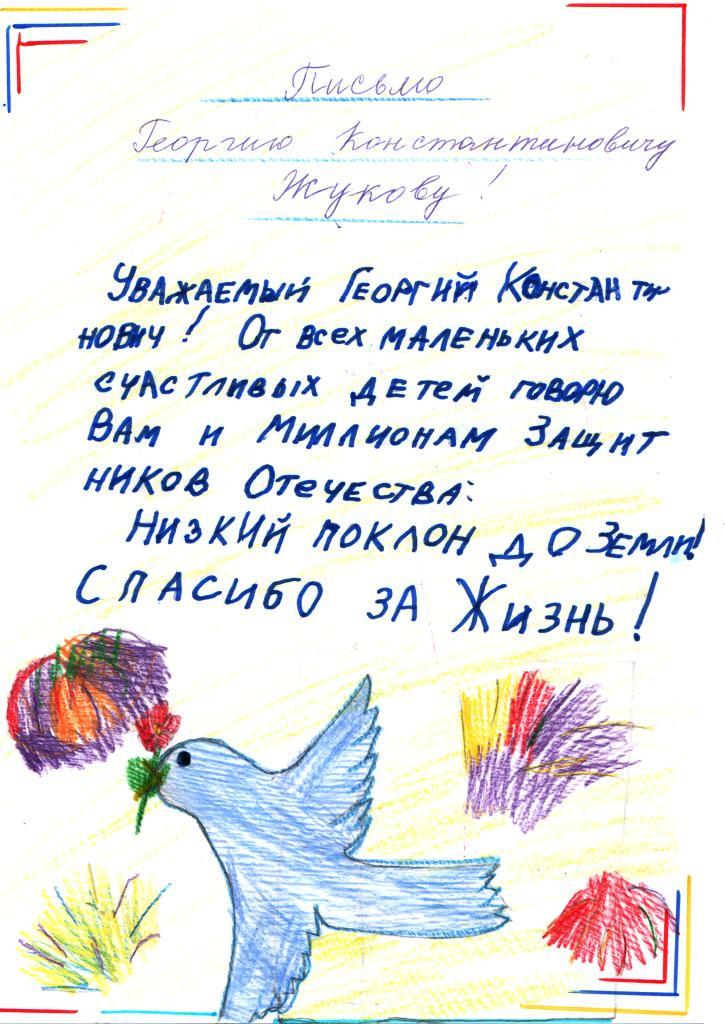 Письмо
Георгию Константиновичу
Жукову!
Уважаемый Георгий Констант и
нович! От всех маленьких
счастливых детей говорю
Вам и миллионам Защит
ников Отечества:
Низкий поклон до земли!
Спасибо за Жизнь!